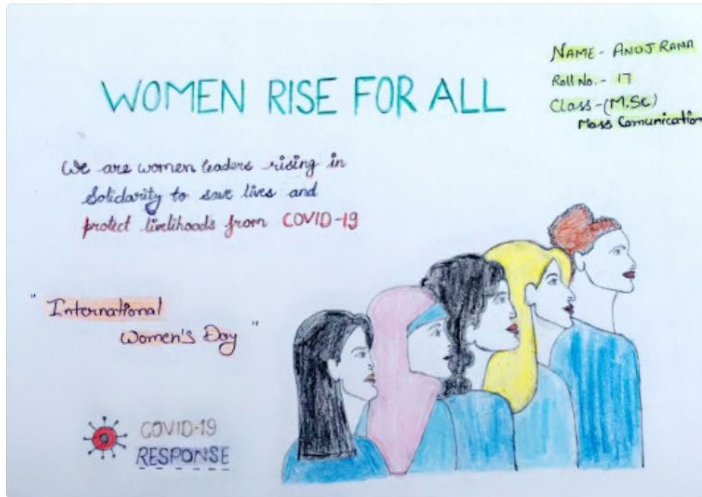 WOMEN RISE FOR ALL
NAME - ANUJ RANA
Roll No. - 17
Class - (M.SC)
Mass Comunication
We are women leaders rising in
Solidarity to save lives and
protect livelihoods from COVID-19
" International
Women's Day "
COVID-19
RESPONSE